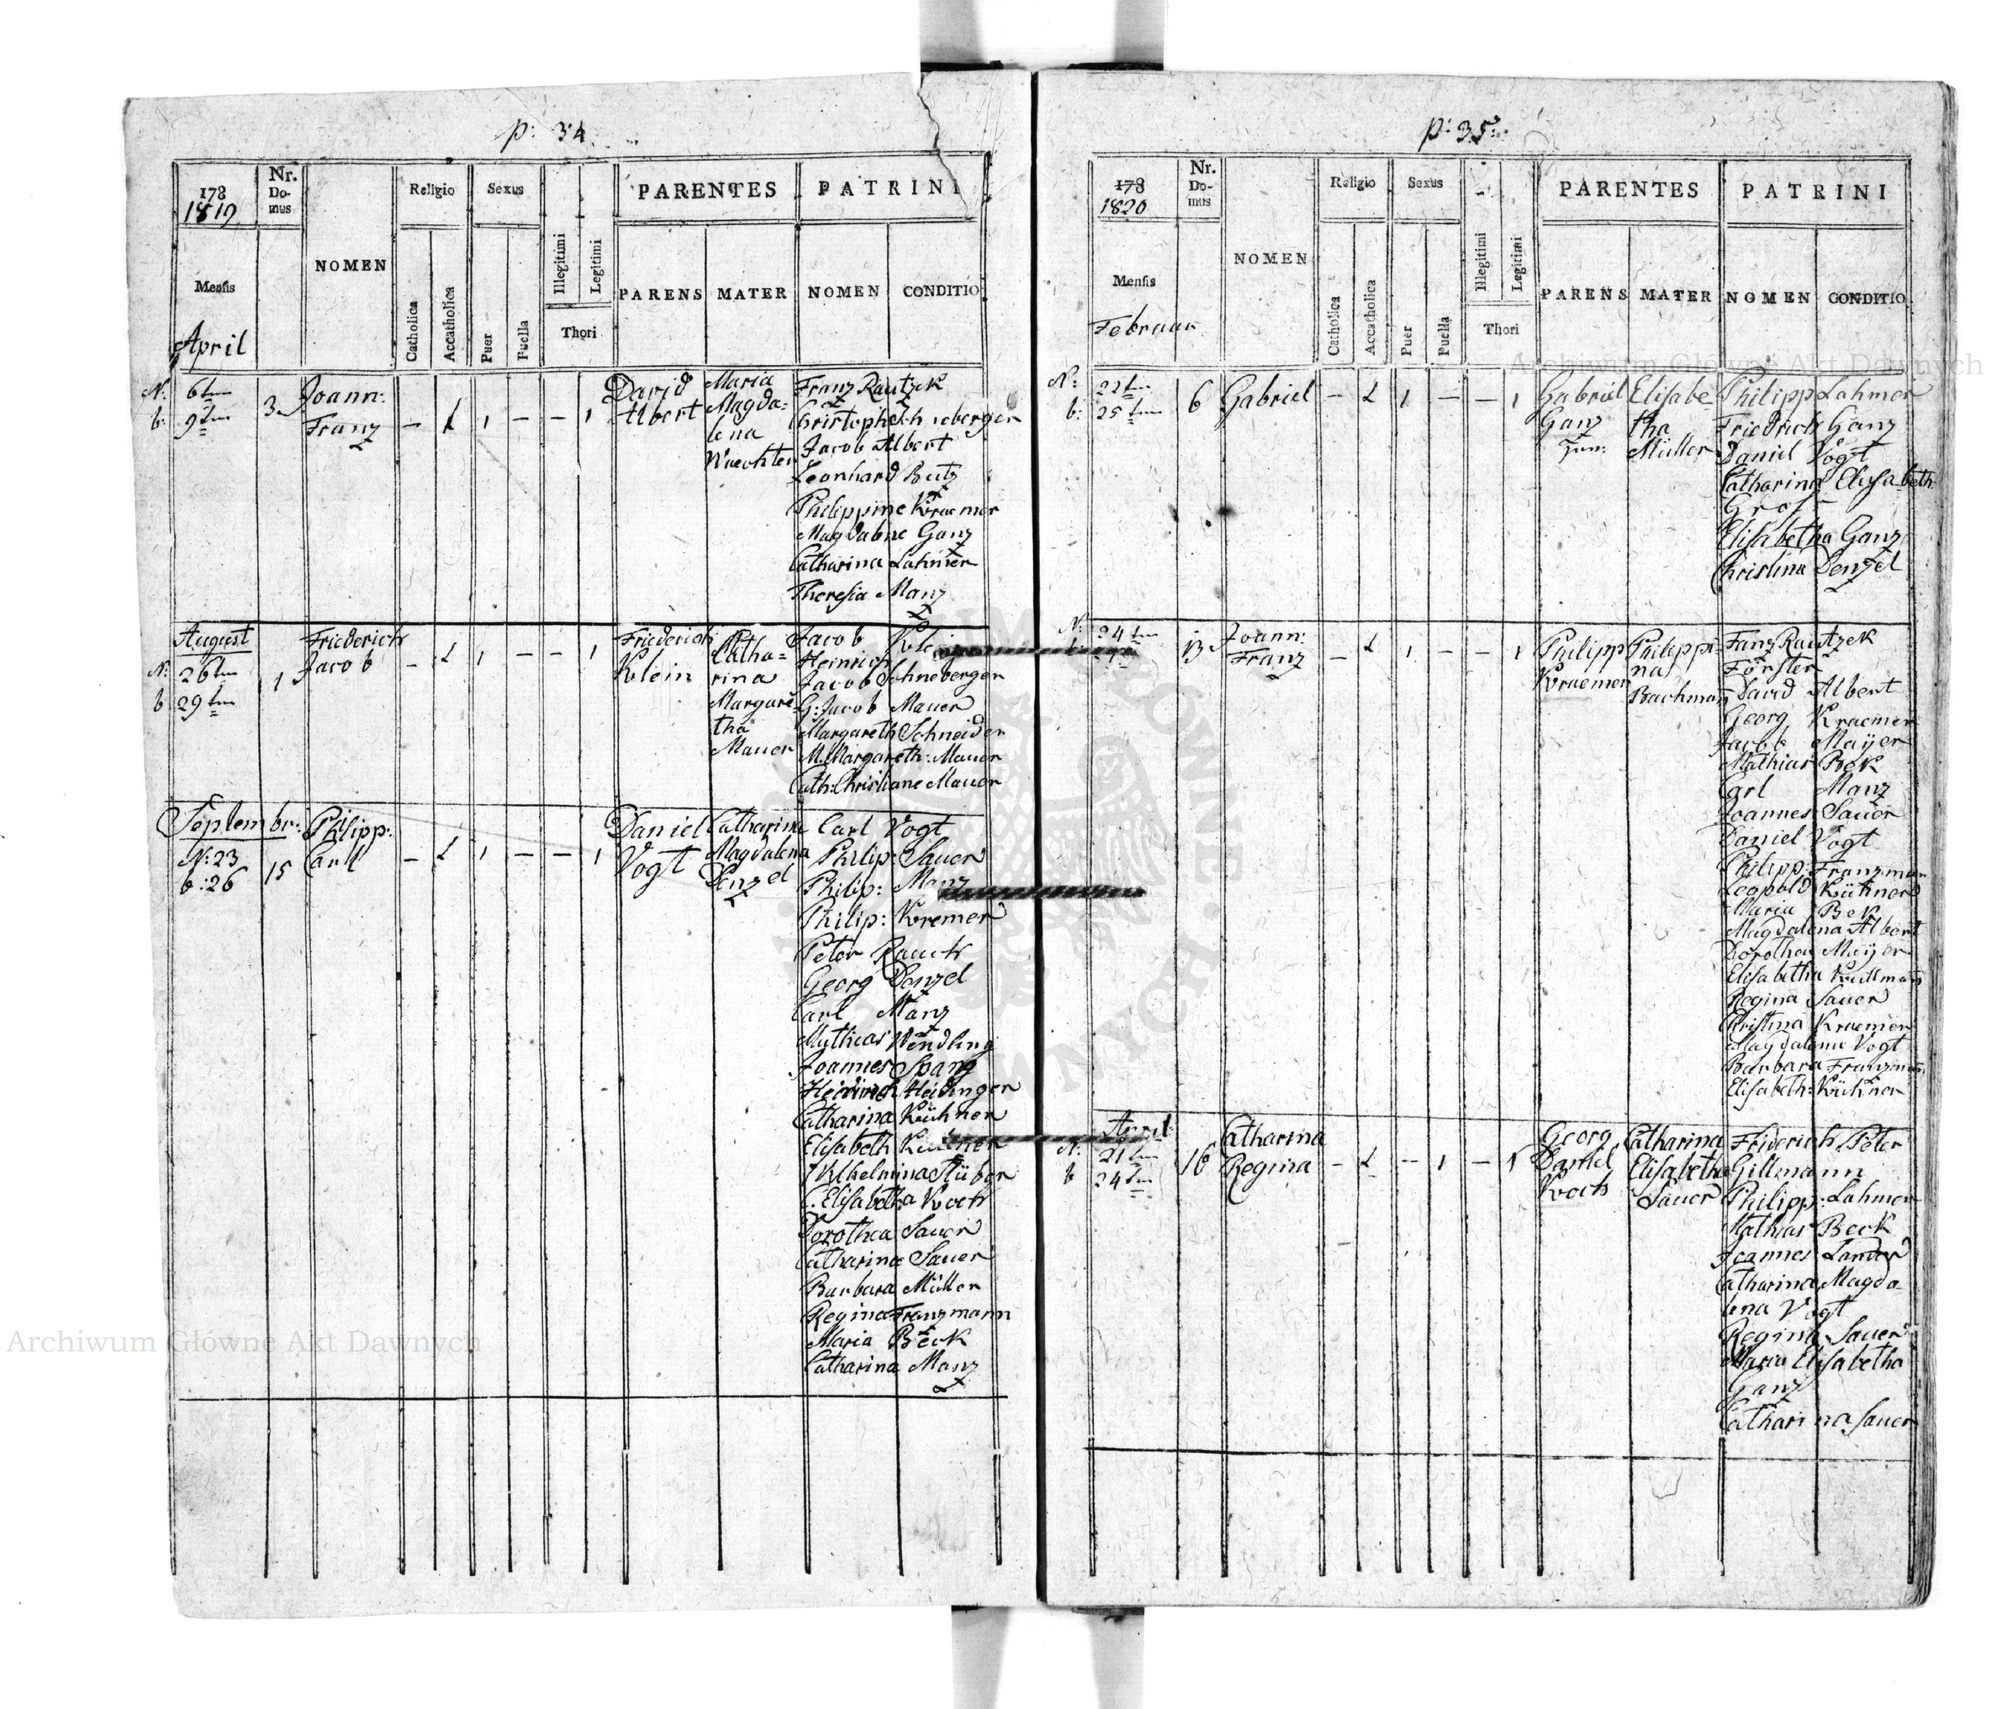 p: 34
178
1819
Nr.
Do-
mus
NOMEN
Religio
Sexus
Illegitimi
Legitimi
Thori
PARENTES
PATRINI
Mensis
April
Catholica
Accatholica
Puer
Puella
PARENS
MATER
NOMEN
CONDITIO
N: 6ten
b: 9ten
3
Joann:
Franz
– 1 1 – – 1
David
Albert
Maria
Magda=
lena
Waechter
Franz Rautzek
Christoph Schneberger
Jacob Albert
Leonhard Butz
Philippine Kraemer
Magdalene Ganz
Catharina Lahmer
Theresia Manz
August
N: 26ten
b 29ten
1
Friederich
Jacob
– 1 1 – – 1
Friederich
Klein
Catha=
rina
Margare=
tha
Mauer
Jacob Klein
Heinrich
Jacob Schneberger
G: Jacob Mauer
Margareth Schneider
M. Margareth: Mauer
Cath: Christiane Mauer
Septembr:
N: 23
b: 26
15
Philipp:
Carl
– 1 1 – – 1
Daniel
Vogt
Catharina
Magdalena
Denzel
Carl Vogt
Philip: Sauer
Philip: Manz
Philip: Kremer
Peter Rauch
Georg Denzel
Carl Manz
Mathias Wendling
Joannes Spang
Heinrich Heidinger
Catharina Kühner
Elisabeth Kuehner
Wilhelmina Stüber
C. Elisabetha Koch
Dorothea Sauer
Catharina Sauer
Barbara Müller
Regina Franzmann
Maria Beck
Catharina Manz
p: 35
178
1820
Nr.
Do-
mus
NOMEN
Religio
Sexus
Illegitimi
Legitimi
Thori
PARENTES
PATRINI
Mensis
Februar
Catholica
Accatholica
Puer
Puella
PARENS
MATER
NOMEN
CONDITIO
N: 22ten
b: 25ten
6
Gabriel
– 1 1 – – 1
Gabriel
Ganz
Jun:
Elisabe=
tha
Müller
Philipp Lahmer
Friedrich Ganz
Daniel Vogt
Catharina Elisabeth
Graf
Elisabetha Ganz
Christina Denzel
N: 24ten
13
Joann:
Franz
– 1 1 – – 1
Philipp
Kraemer
Philippi=
na
Bachmann
Franz Rautzek
Förster
David Albert
Georg Kraemer
Jacob Maÿer
Mathias Bek
Carl Manz
Joannes Sauer
Daniel Vogt
Philipp: Franzman
Leopold Kühner
Maria Bek
Magdalena Albert
Dorothea Maÿer
Elisabetha Kullmann
Regina Sauer
Christina Kraemer
Magdalena Vogt
Barbara Franzman
Elisabeth: Kühner
April
N: 21ten
b 24ten
16
Catharina
Regina
– 1 – 1 – 1
Georg
Daniel
Koch
Catharina
Elisabetha
Sauer
Friderich Peter
Gillmann
Philipp: Lahmer
Mathias Beck
Joannes Lander
Catharina Magda
lena Vogt
Regina Sauer
Maria Elisabetha
Ganz
Catharina Sauer
Archiwum Główne Akt Dawnych
Archiwum Główne Akt Dawnych